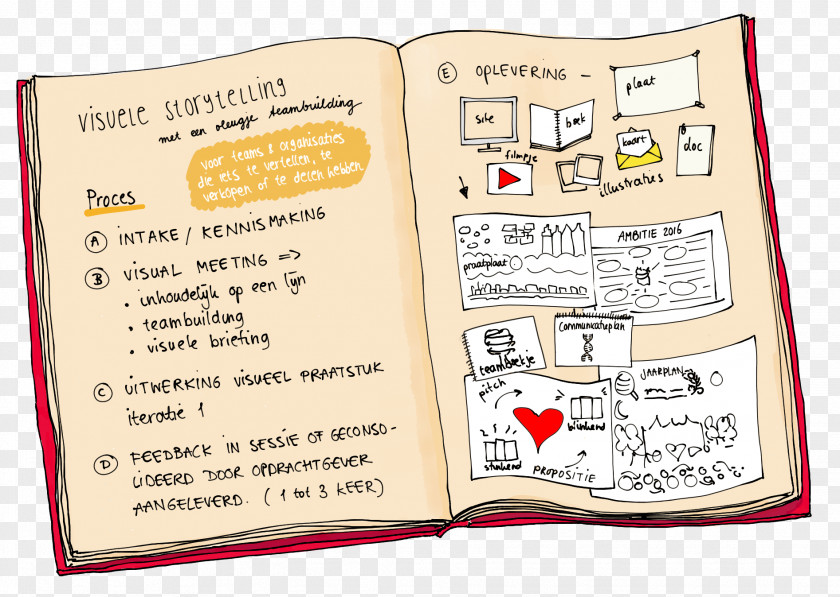 visuele storytelling
met een vleugje teambuilding
voor teams & organisaties
die iets te vertellen, te
verkopen of te delen hebben
Proces
A INTAKE / KENNISMAKING
B VISUAL MEETING =>
• inhoudelijk op een lijn
• teambuildung
• visuele briefing
C UITWERKING VISUEEL PRAATSTUK
iteratie 1
D FEEDBACK IN SESSIE OF GECONSO-
LIDEERD DOOR OPDRACHTGEVER
AANGELEVERD. (1 tot 3 KEER)
E OPLEVERING –
plaat
site
boek
kaart
doc
filmpje
illustraties
praatplaat
AMBITIE 2016
communicatieplan
teamboekje
pitch
JAARPLAN
blinkend
stinkend
PROPOSITIE